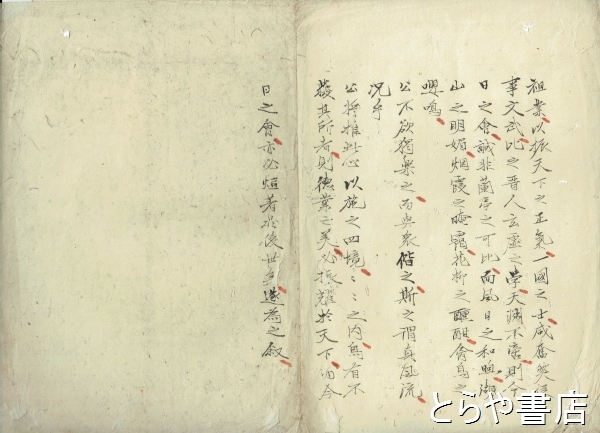 祖業以振天下之正氣一國之士咸奮然
事文武比之晋人玄虚之学天渕不啻則今
日之會誠非蘭亭之可比而風日之和煦湖
山之明媚烟霞之晻靄花柳之醺酣禽鳥之
嚶鳴
公不欲獨樂之而与衆偕之斯之謂真風流
况乎
公将推此心以施之四境〻〻之内鳥有不
得其所者則德業之美必振耀於天下而今
日之會亦必烜著於後世矣遂為之叙
とらや書店